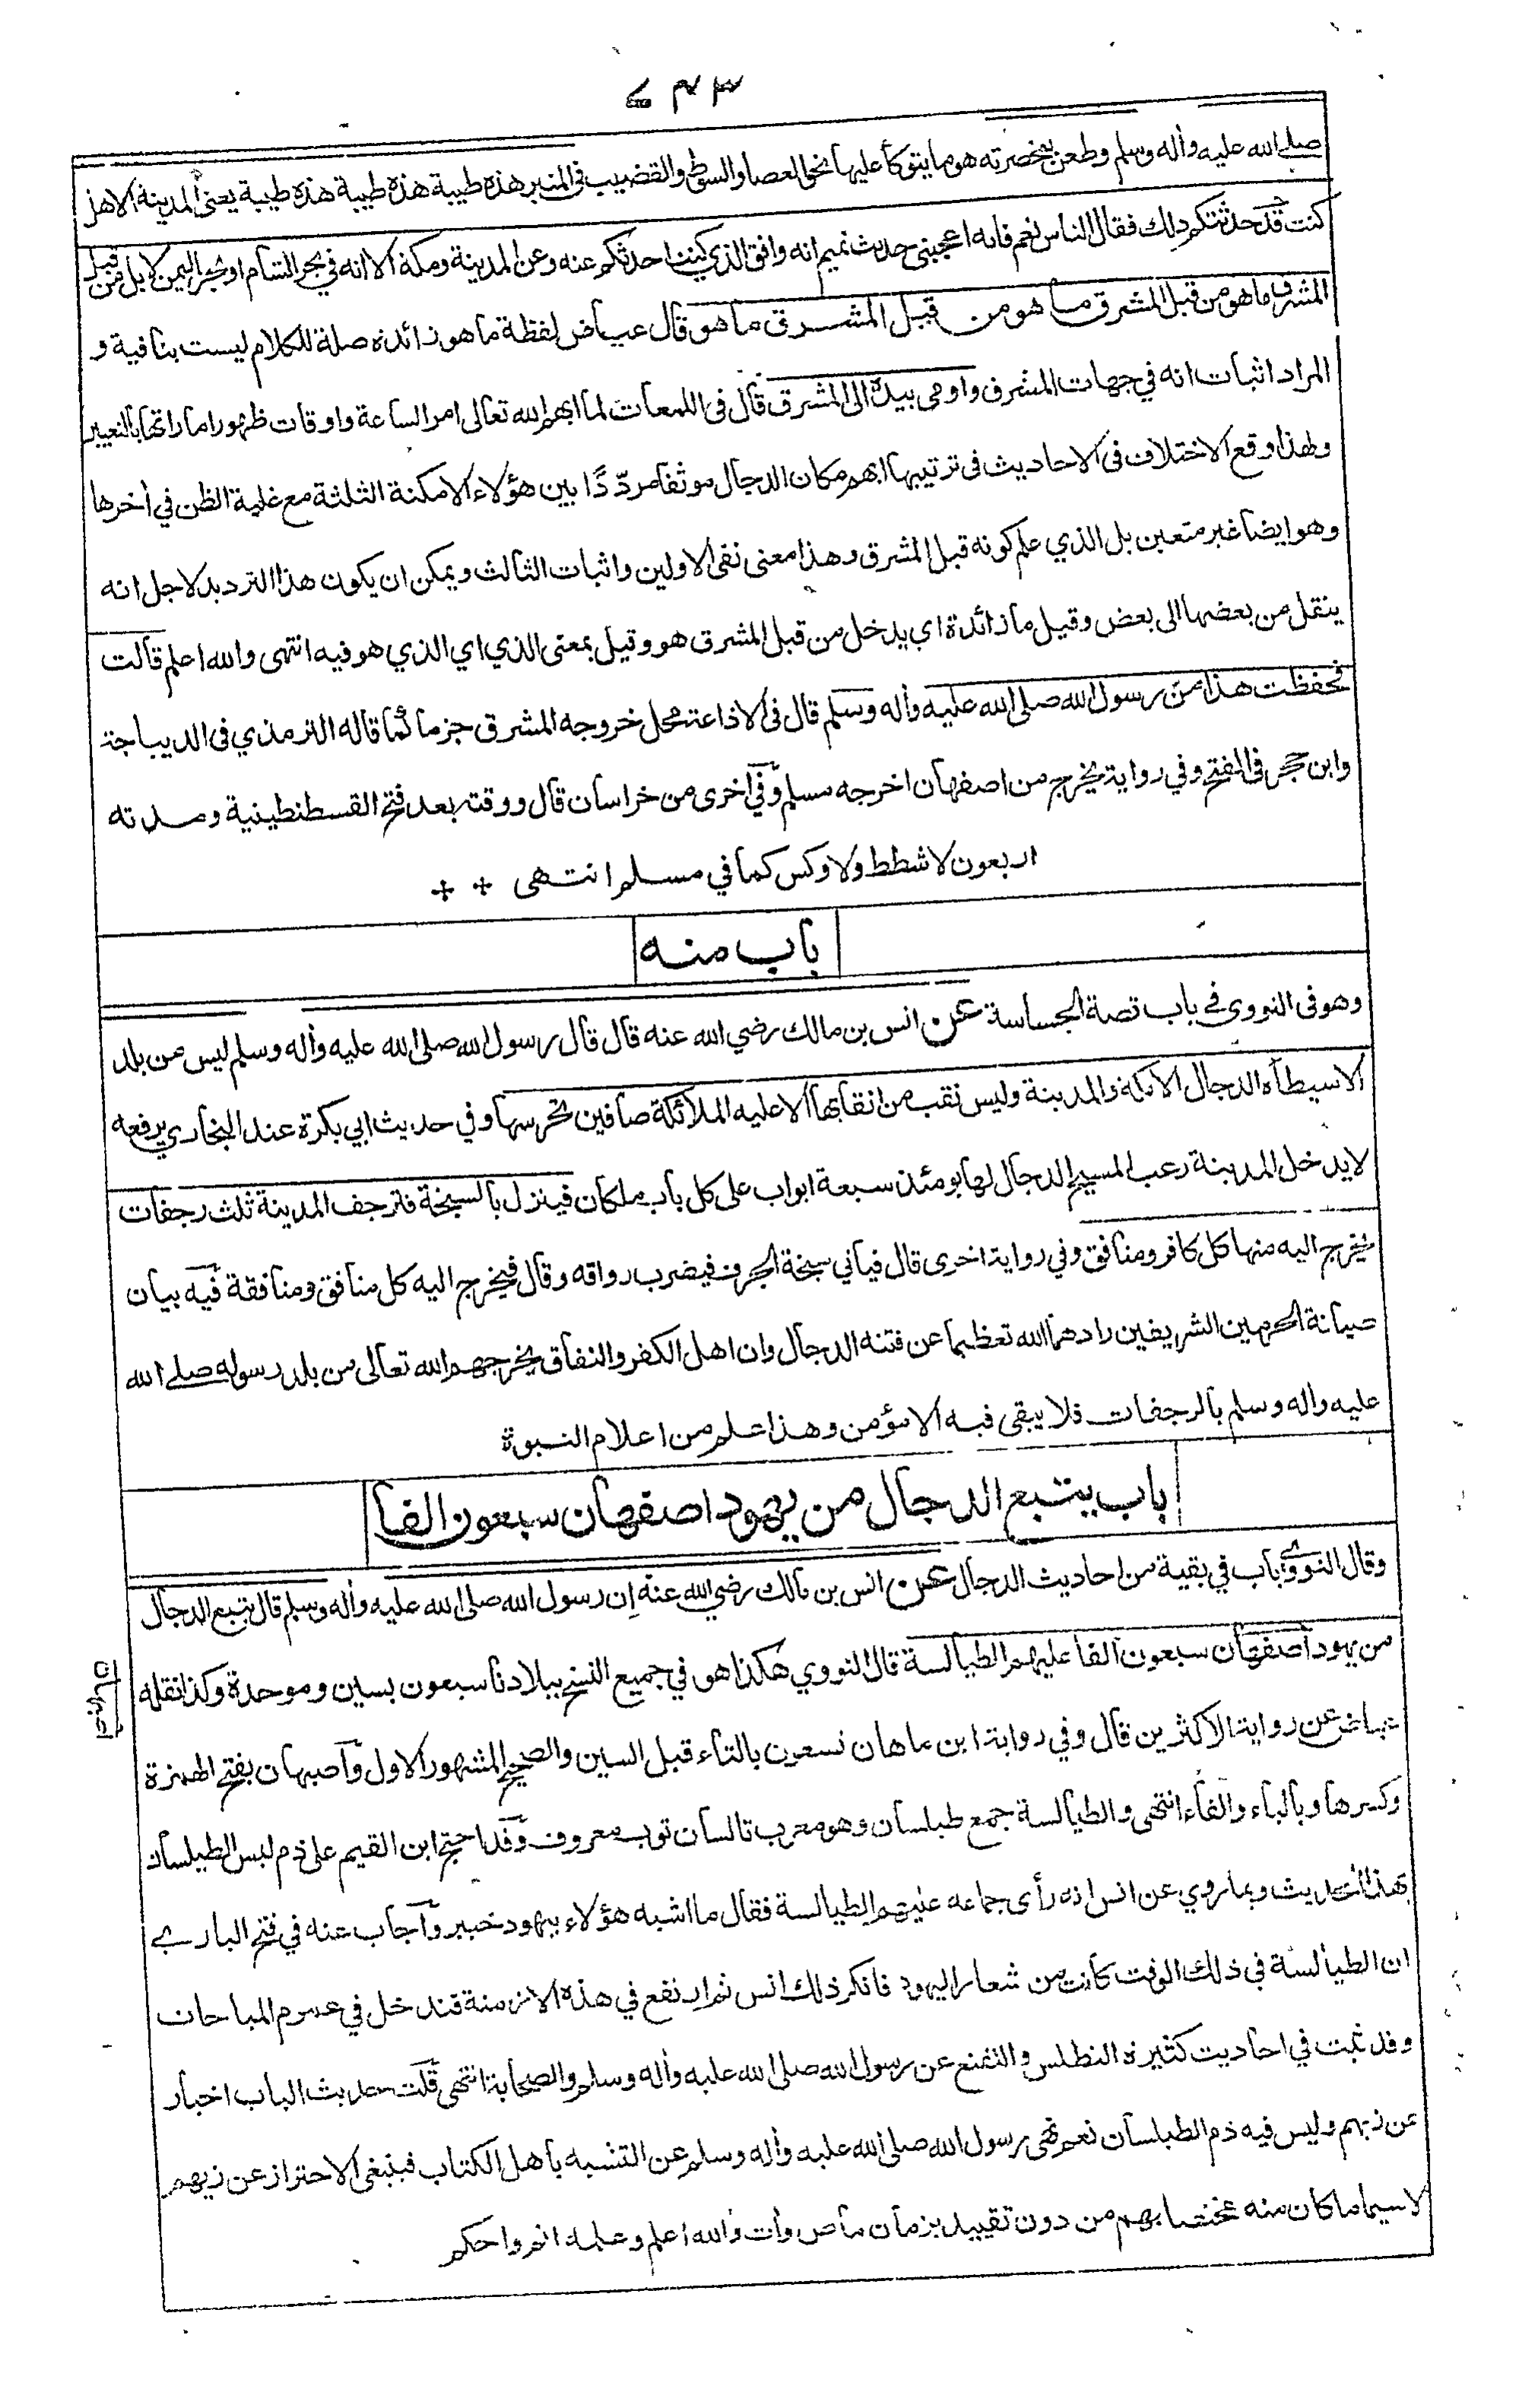 ٧٤٣
صلى الله عليه وأله وسلم وطعن بمخصرته هو ما يتوكأ عليها نحو العصا والسوط والقضيب في المنبر هذه طيبة هذه طيبة هذه طيبة يعني المدينة الا هل
كنت قد حدثتكم ذلك فقال الناس نعم فانه اعجبني حديث تميم انه وافق الذي كنت احدثكم عنه وعن المدينة ومكة الا انه في بحر الشام او بحر اليمن لا بل من قبل
المشرق ما هو من قبل المشرق ما هو من قبل المشرق ما هو قال عياض لفظة ما هو زائدة صلة للكلام ليست بنافية و
المراد اثبات انه في جهات المشرق واومى بيده الى المشرق قال في اللمعات لما ابهم الله تعالى امر الساعة واوقات ظهور اماراتها بالتعيين
ولهذا وقع الاختلاف في الاحاديث في ترتيبها ابهم مكان الدجال موثقا مرددًا بين هؤلاء الامكنة الثلثة مع غلبة الظن في أخرها
وهو ايضا غير متعين بل الذي علم كونه قبل المشرق وهذا معنى نفي الاولين واثبات الثالث ويمكن ان يكون هذا الترديد لاجل انه
ينقل من بعضها الى بعض وقيل ما زائدة اي يدخل من قبل المشرق هو وقيل بمعنى الذي اي الذي هو فيه انتهى والله اعلم قالت
فحفظت هذا من رسول الله صلى الله عليه وأله وسلم قال في الاذاعة محل خروجه المشرق جزما كما قاله الترمذي في الديباجة
وابن حجر في الفتح وفي رواية يخرج من اصفهان اخرجه مسلم وفي اخرى من خراسان قال ووقته بعد فتح القسطنطينية ومدته
اربعون لا شطط ولا وكس كما في مسلم انتهى
باب منه
وهو في النووي في باب قصة الجساسة عن انس بن مالك رضي الله عنه قال قال رسول الله صلى الله عليه وأله وسلم ليس من بلد
الا سيطأه الدجال الا مكة والمدينة وليس نقب من انقابها الا عليه الملائكة صافين تحرسها وفي حديث ابي بكرة عند البخاري يرفعه
لا يدخل المدينة رعب المسيح الدجال لها يومئذ سبعة ابواب على كل باب ملكان فينزل بالسبخة فترجف المدينة ثلث رجفات
يخرج اليه منها كل كافر ومنافق وفي رواية اخرى قال فيأتي سبخة الجرف فيضرب رواقه وقال فيخرج اليه كل منافق ومنافقة فيه بيان
صيانة الحرمين الشريفين زادهما الله تعظيما عن فتنة الدجال وان اهل الكفر والنفاق يخرجهم الله تعالى من بلد رسوله صلى الله
عليه وأله وسلم بالرجفات فلا يبقى فيه الا مؤمن وهذا علم من اعلام النبوة
باب يتبع الدجال من يهود اصفهان سبعون الفا
وقال النووي باب في بقية من احاديث الدجال عن انس بن مالك رضي الله عنه ان رسول الله صلى الله عليه وأله وسلم قال يتبع الدجال
من يهود اصفهان سبعون الفا عليهم الطيالسة قال النووي هكذا هو في جميع النسخ ببلادنا سبعون بسين وموحدة وكذا نقله
عياض عن رواية الاكثرين قال وفي رواية ابن ماهان تسعون بالتاء قبل السين والصحيح المشهور الاول وأصبهان بفتح الهمزة
وكسرها وبالباء والفاء انتهى والطيالسة جمع طيلسان وهو معرب تالسان ثوب معروف وقد احتج ابن القيم على ذم لبس الطيلسان
بهذا الحديث وبما روي عن انس انه رأى جماعة عليهم الطيالسة فقال ما اشبه هؤلاء بيهود خيبر وأجاب عنه في فتح الباري
ان الطيالسة في ذلك الوقت كانت من شعار اليهود فانكر ذلك انس ثم ارتفع في هذه الازمنة فتدخل في عموم المباحات
وقد ثبت في احاديث كثيرة التطلس والتقنع عن رسول الله صلى الله عليه وأله وسلم والصحابة انتهى قلت حديث الباب اخبار
عن زيهم وليس فيه ذم الطيلسان نعم نهى رسول الله صلى الله عليه وأله وسلم عن التشبه بأهل الكتاب فينبغي الاحتراز عن زيهم
لا سيما ما كان منه مختصا بهم من دون تقييد بزمان ماض وأت والله اعلم وعلمه اتم واحكم
اصبهان